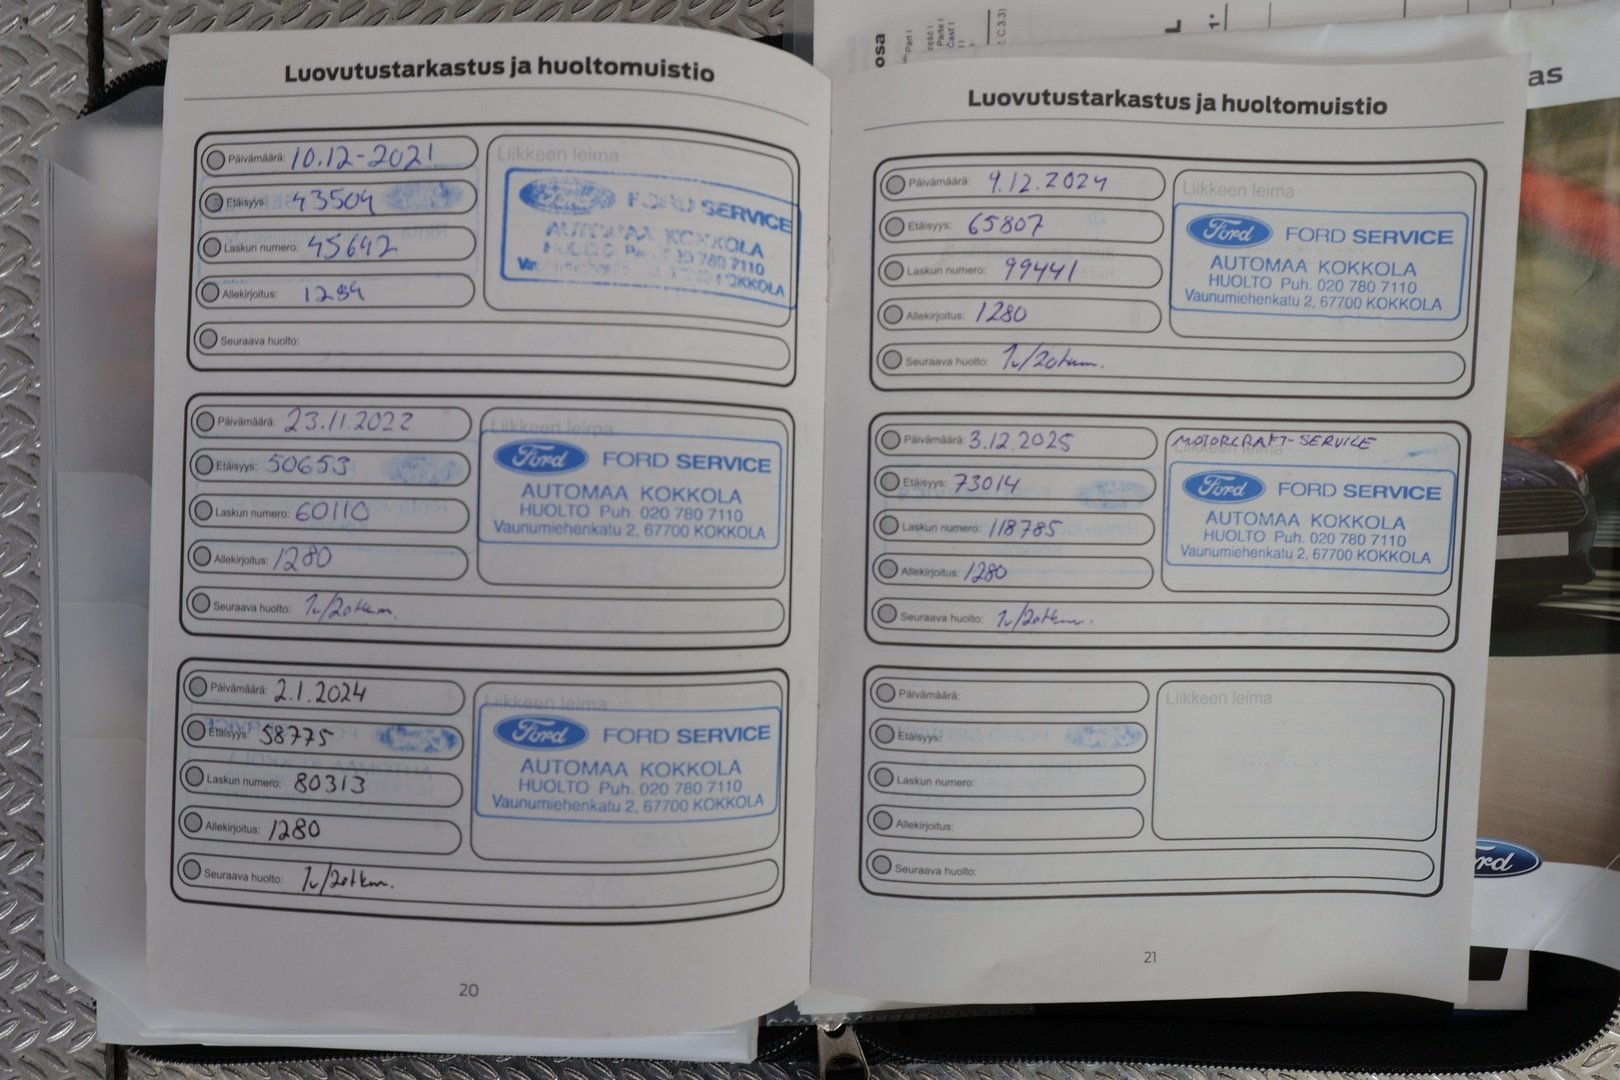 Luovutustarkastus ja huoltomuistio
Päivämäärä: 10.12-2021
Etäisyys: 43504
Laskun numero: 45642
Allekirjoitus: 1284
Seuraava huolto:
Liikkeen leima
FORD SERVICE
AUTOMAA KOKKOLA
HUOLTO Puh. 020 780 7110
KOKKOLA
Päivämäärä: 23.11.2022
Etäisyys: 50653
Laskun numero: 60110
Allekirjoitus: 1280
Seuraava huolto: 1v/20tkm.
Liikkeen leima
Ford FORD SERVICE
AUTOMAA KOKKOLA
HUOLTO Puh. 020 780 7110
Vaunumiehenkatu 2, 67700 KOKKOLA
Päivämäärä: 2.1.2024
Etäisyys: 58775
Laskun numero: 80313
Allekirjoitus: 1280
Seuraava huolto: 1v/20tkm.
Liikkeen leima
Ford FORD SERVICE
AUTOMAA KOKKOLA
HUOLTO Puh. 020 780 7110
Vaunumiehenkatu 2, 67700 KOKKOLA
20
Luovutustarkastus ja huoltomuistio
Päivämäärä: 9.12.2024
Etäisyys: 65807
Laskun numero: 99441
Allekirjoitus: 1280
Seuraava huolto: 1v/20tkm.
Liikkeen leima
Ford FORD SERVICE
AUTOMAA KOKKOLA
HUOLTO Puh. 020 780 7110
Vaunumiehenkatu 2, 67700 KOKKOLA
Päivämäärä: 3.12.2025
Etäisyys: 73014
Laskun numero: 118785
Allekirjoitus: 1280
Seuraava huolto: 1v/20tkm.
MOTORCRAFT-SERVICE
Liikkeen leima
Ford FORD SERVICE
AUTOMAA KOKKOLA
HUOLTO Puh. 020 780 7110
Vaunumiehenkatu 2, 67700 KOKKOLA
Päivämäärä:
Etäisyys:
Laskun numero:
Allekirjoitus:
Seuraava huolto:
Liikkeen leima
21
osa
Part I
Parte I
C.3.3)
1*
as